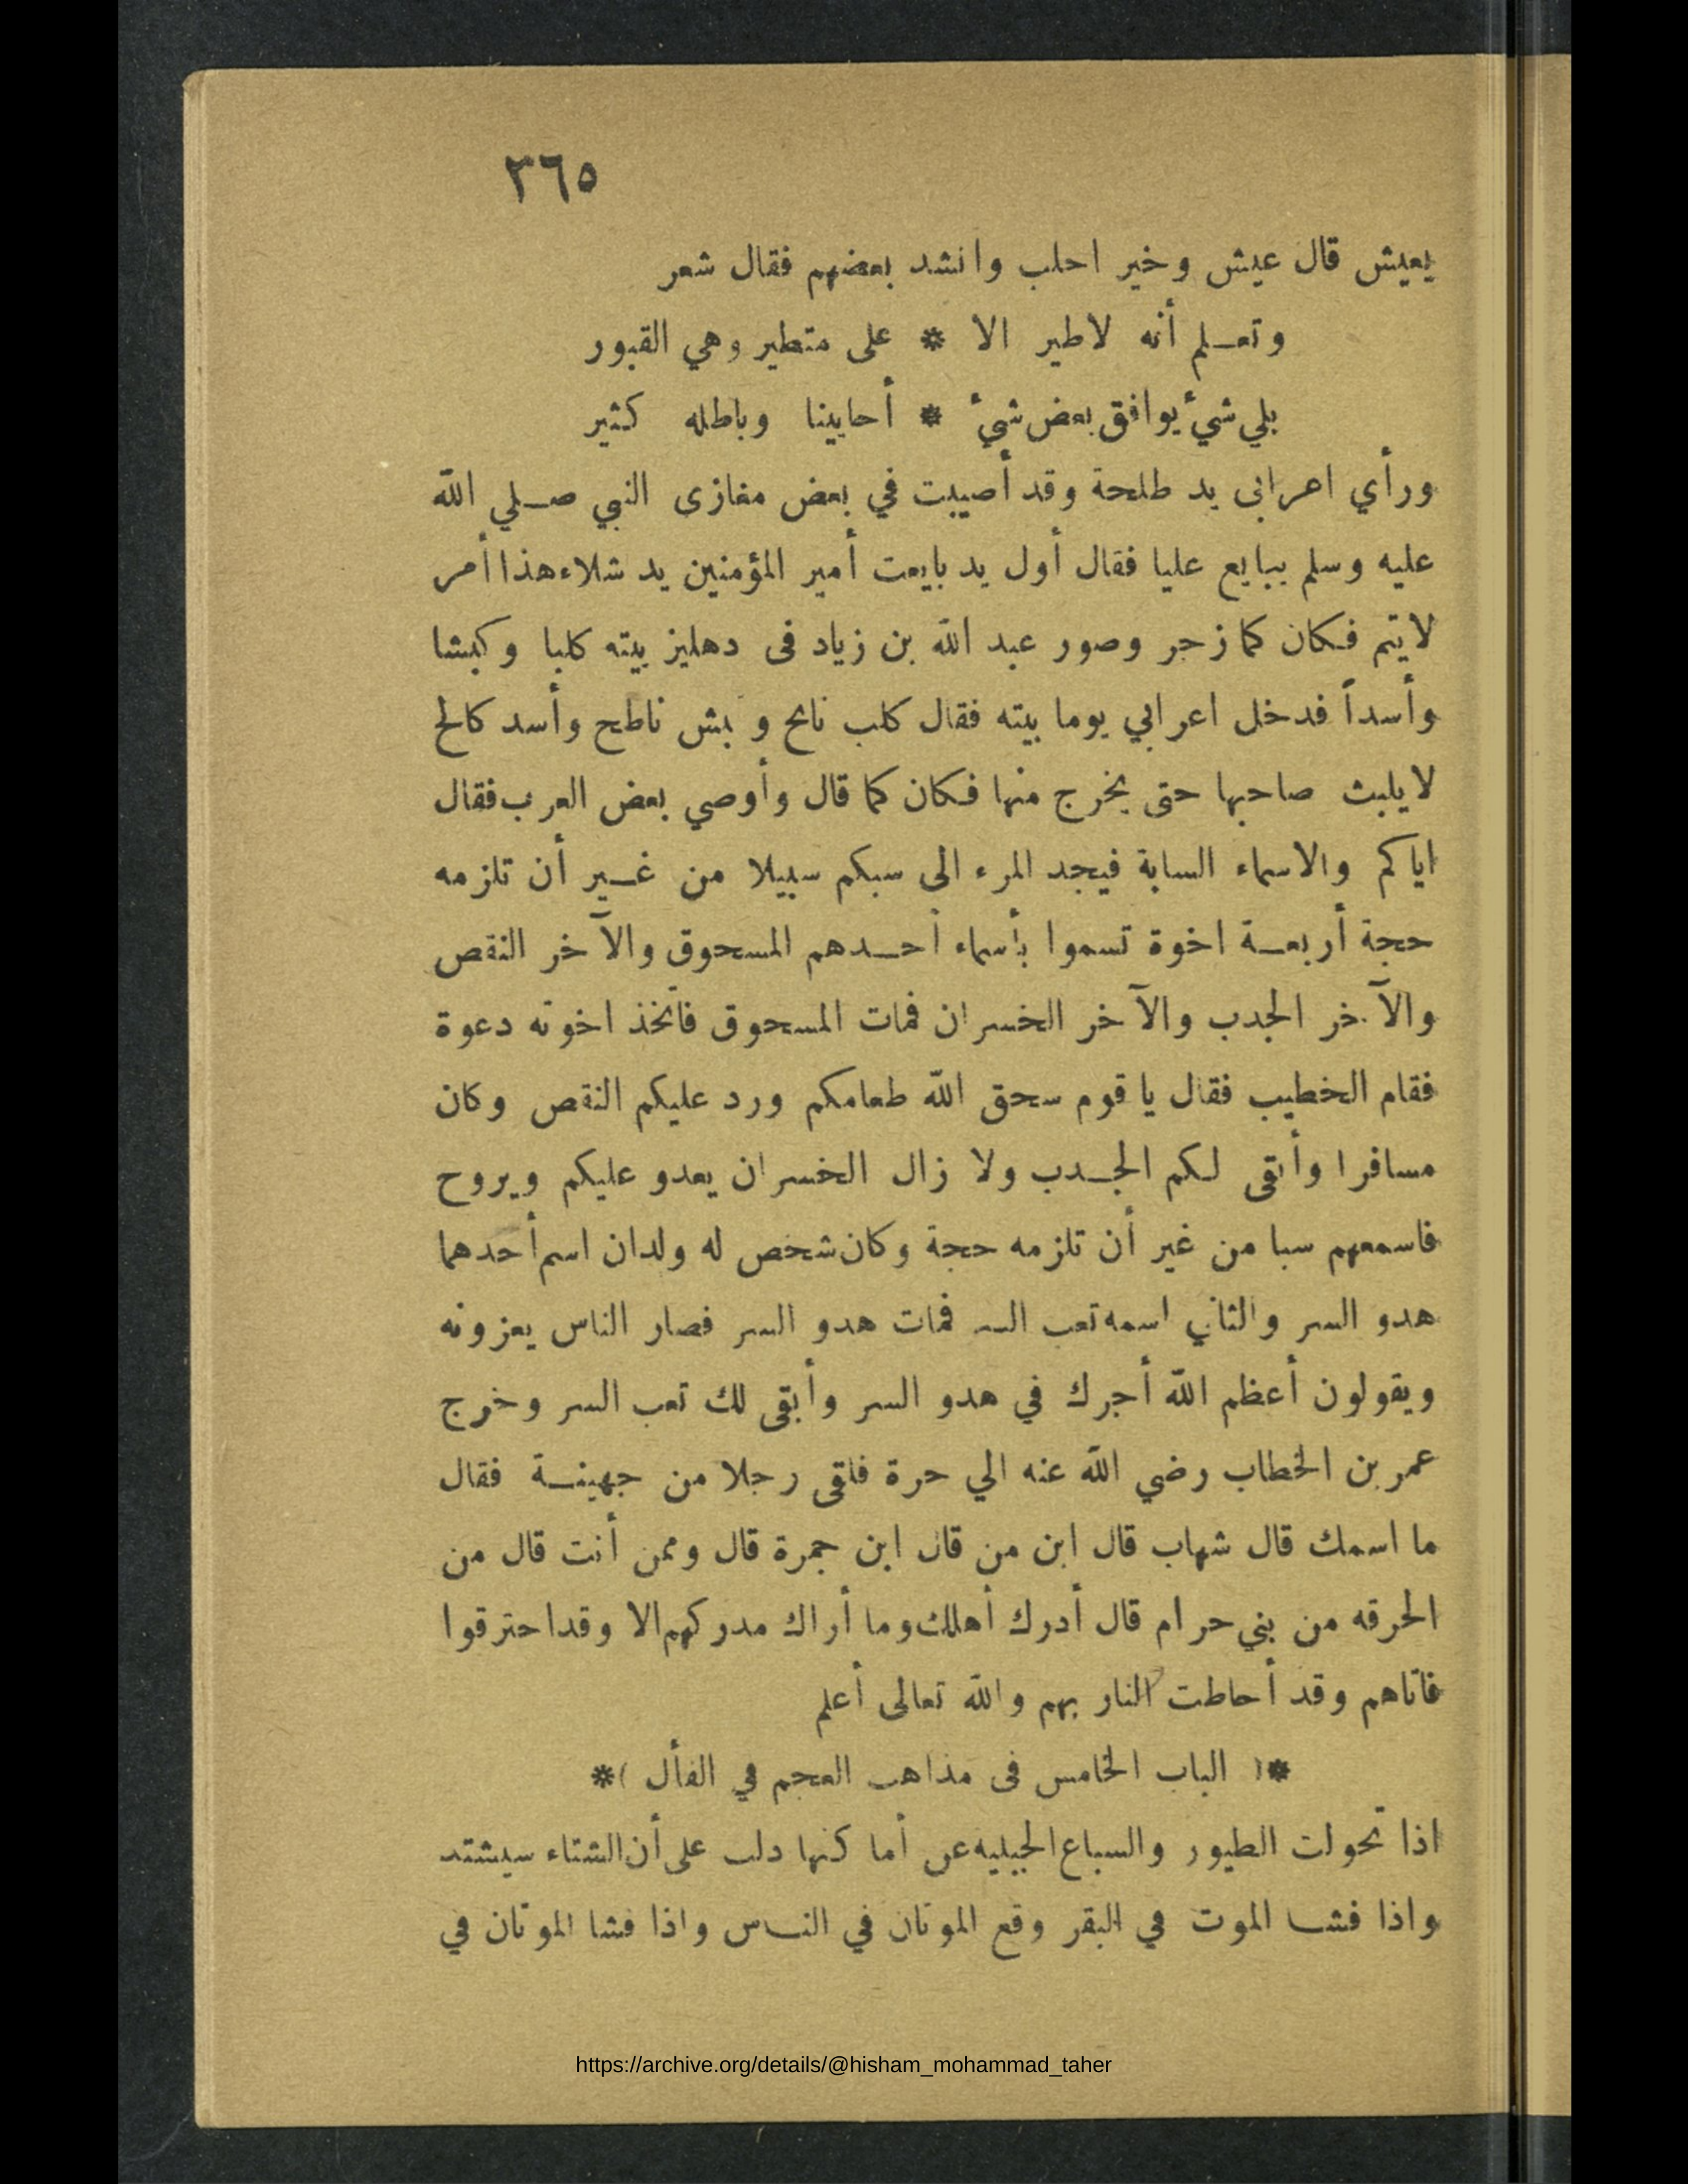 ٣٦٥
يعيش قال عيش وخير احلب وانشد بعضهم فقال شعر
وتعلم أنه لاطير الا * على متطير وهي القبور
بلي شيء يوافق بعض شيء * أحايينا وباطله كثير
ورأي اعرابى يد طلحة وقد أصيبت في بعض مغازى النبي صلي الله
عليه وسلم يبايع عليا فقال أول يد بايعت أمير المؤمنين يد شلاء هذا أمر
لايتم فكان كما زجر وصور عبد الله بن زياد فى دهليز بيته كلبا وكبشا
وأسداً فدخل اعرابي يوما بيته فقال كلب نابح و بش ناطح وأسد كالح
لايلبث صاحبها حتى يخرج منها فكان كما قال وأوصي بعض العرب فقال
اياكم والاسماء السابة فيجد المرء الى سبكم سبيلا من غير أن تلزمه
حجة أربعة اخوة تسموا بأسماء أحدهم المسحوق والآخر النقص
والآخر الجدب والآخر الخسران فمات المسحوق فاتخذ اخوته دعوة
فقام الخطيب فقال يا قوم سحق الله طعامكم ورد عليكم النقص وكان
مسافرا وأبقى لكم الجدب ولا زال الخسران يعدو عليكم ويروح
فاسمعهم سبا من غير أن تلزمه حجة وكان شخص له ولدان اسم أحدهما
هدو السر والثاني اسمه تعب السر فمات هدو السر فصار الناس يعزونه
ويقولون أعظم الله أجرك في هدو السر وأبقى لك تعب السر وخرج
عمر بن الخطاب رضي الله عنه الي حرة فلقى رجلا من جهينة فقال
ما اسمك قال شهاب قال ابن من قال ابن جمرة قال وممن أنت قال من
الحرقه من بني حرام قال أدرك أهلك وما أراك مدركهم الا وقد احترقوا
فاتاهم وقد أحاطت النار بهم والله تعالى أعلم
*( الباب الخامس فى مذاهب العجم في الفأل )*
اذا تحولت الطيور والسباع الجبليه عن أماكنها دلت على أن الشتاء سيشتد
واذا فشا الموت في البقر وقع الموتان في الناس واذا فشا الموتان في
https://archive.org/details/@hisham_mohammad_taher